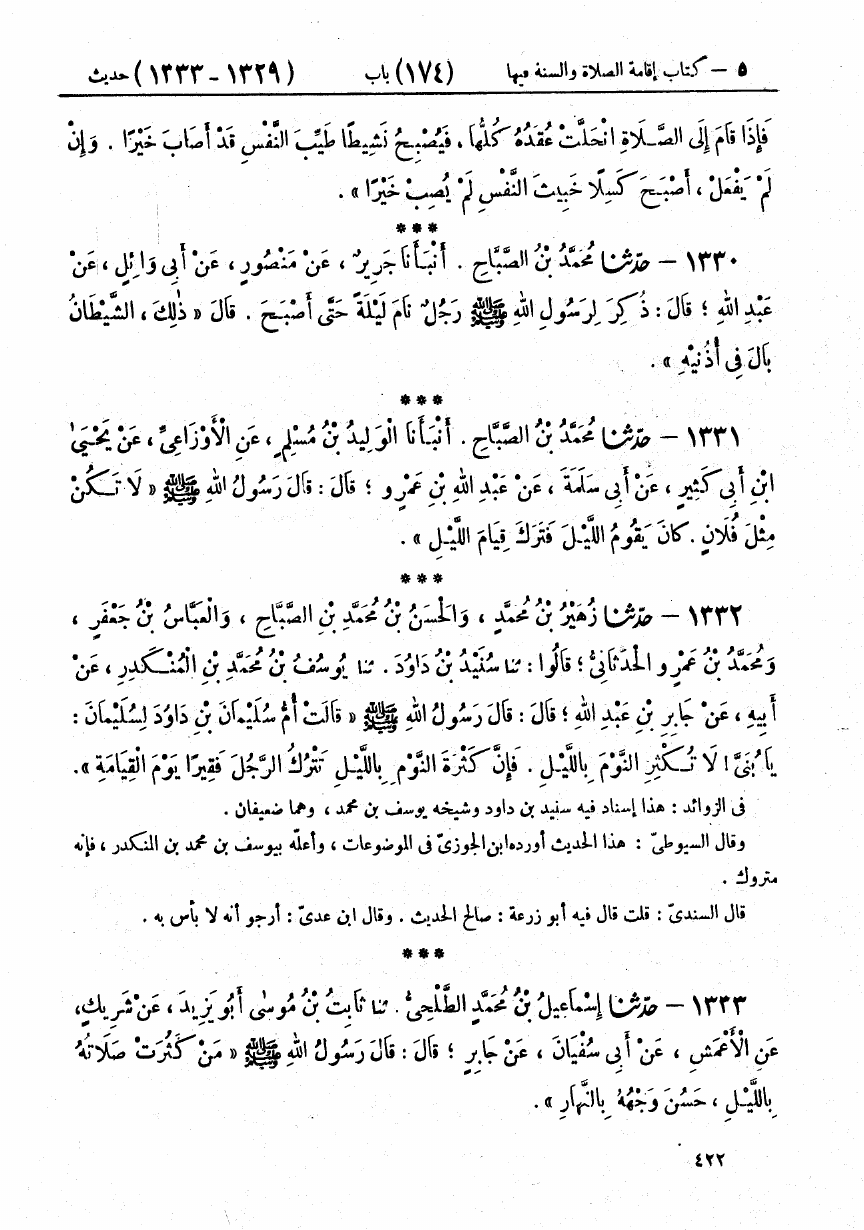 ٥ – كتاب إقامة الصلاة والسنة فيها (١٧٤) باب (١٣٢٩ – ١٣٣٣) حديث
فَإِذَا قَامَ إِلَى الصَّلَاةِ انْحَلَّتْ عُقَدُهُ كُلُّهَا ، فَيُصْبِحُ نَشِيطًا طَيِّبَ النَّفْسِ قَدْ أَصَابَ خَيْرًا . وَإِنْ
لَمْ يَفْعَلْ ، أَصْبَحَ كَسِلًا خَبِيثَ النَّفْسِ لَمْ يُصِبْ خَيْرًا » .
***
١٣٣٠ – حدّثنا مُحَمَّدُ بْنُ الصَّبَّاحِ . أَنْبَأَنَا جَرِيرٌ ، عَنْ مَنْصُورٍ ، عَنْ أَبِى وَائِلٍ ، عَنْ
عَبْدِ اللهِ ؛ قَالَ : ذُكِرَ لِرَسُولِ اللهِ ﷺ رَجُلٌ نَامَ لَيْلَةً حَتَّى أَصْبَحَ . قَالَ « ذٰلِكَ ، الشَّيْطَانُ
بَالَ فِى أُذُنَيْهِ » .
***
١٣٣١ – حدّثنا مُحَمَّدُ بْنُ الصَّبَّاحِ . أَنْبَأَنَا الْوَلِيدُ بْنُ مُسْلِمٍ ، عَنِ الْأَوْزَاعِىِّ ، عَنْ يَحْيَىٰ
ابْنِ أَبِى كَثِيرٍ ، عَنْ أَبِى سَلَمَةَ ، عَنْ عَبْدِ اللهِ بْنِ عَمْرٍو ؛ قَالَ : قَالَ رَسُولُ اللهِ ﷺ « لَا تَكُنْ
مِثْلَ فُلَانٍ . كَانَ يَقُومُ اللَّيْلَ فَتَرَكَ قِيَامَ اللَّيْلِ » .
***
١٣٣٢ – حدّثنا زُهَيْرُ بْنُ مُحَمَّدٍ ، وَالْحَسَنُ بْنُ مُحَمَّدِ بْنِ الصَّبَّاحِ ، وَالْعَبَّاسُ بْنُ جَعْفَرٍ ،
وَمُحَمَّدُ بْنُ عَمْرٍو الْحَدَثَانِىُّ ؛ قَالُوا : ثنا سُنَيْدُ بْنُ دَاوُدَ . ثنا يُوسُفُ بْنُ مُحَمَّدِ بْنِ الْمُنْكَدِرِ ، عَنْ
أَبِيهِ ، عَنْ جَابِرِ بْنِ عَبْدِ اللهِ ؛ قَالَ : قَالَ رَسُولُ اللهِ ﷺ « قَالَتْ أُمُّ سُلَيْمَانَ بْنِ دَاوُدَ لِسُلَيْمَانَ :
يَا بُنَىَّ ! لَا تُكْثِرِ النَّوْمَ بِاللَّيْلِ . فَإِنَّ كَثْرَةَ النَّوْمِ بِاللَّيْلِ تَتْرُكُ الرَّجُلَ فَقِيرًا يَوْمَ الْقِيَامَةِ » .
فى الزوائد : هذا إسناد فيه سنيد بن داود وشيخه يوسف بن محمد ، وهما ضعيفان .
وقال السيوطىّ : هذا الحديث أورده ابن الجوزىّ فى الموضوعات ، وأعلّه بيوسف بن محمد بن المنكدر ، فإنه
متروك .
قال السندىّ : قلت قال فيه أبو زرعة : صالح الحديث . وقال ابن عدىّ : أرجو أنه لا بأس به .
***
١٣٣٣ – حدّثنا إِسْمَاعِيلُ بْنُ مُحَمَّدٍ الطَّلْحِىُّ . ثنا ثَابِتُ بْنُ مُوسٰى أَبُو يَزِيدَ ، عَنْ شَرِيكٍ ،
عَنِ الْأَعْمَشِ ، عَنْ أَبِى سُفْيَانَ ، عَنْ جَابِرٍ ؛ قَالَ : قَالَ رَسُولُ اللهِ ﷺ « مَنْ كَثُرَتْ صَلَاتُهُ
بِاللَّيْلِ ، حَسُنَ وَجْهُهُ بِالنَّهَارِ » .
٤٢٢